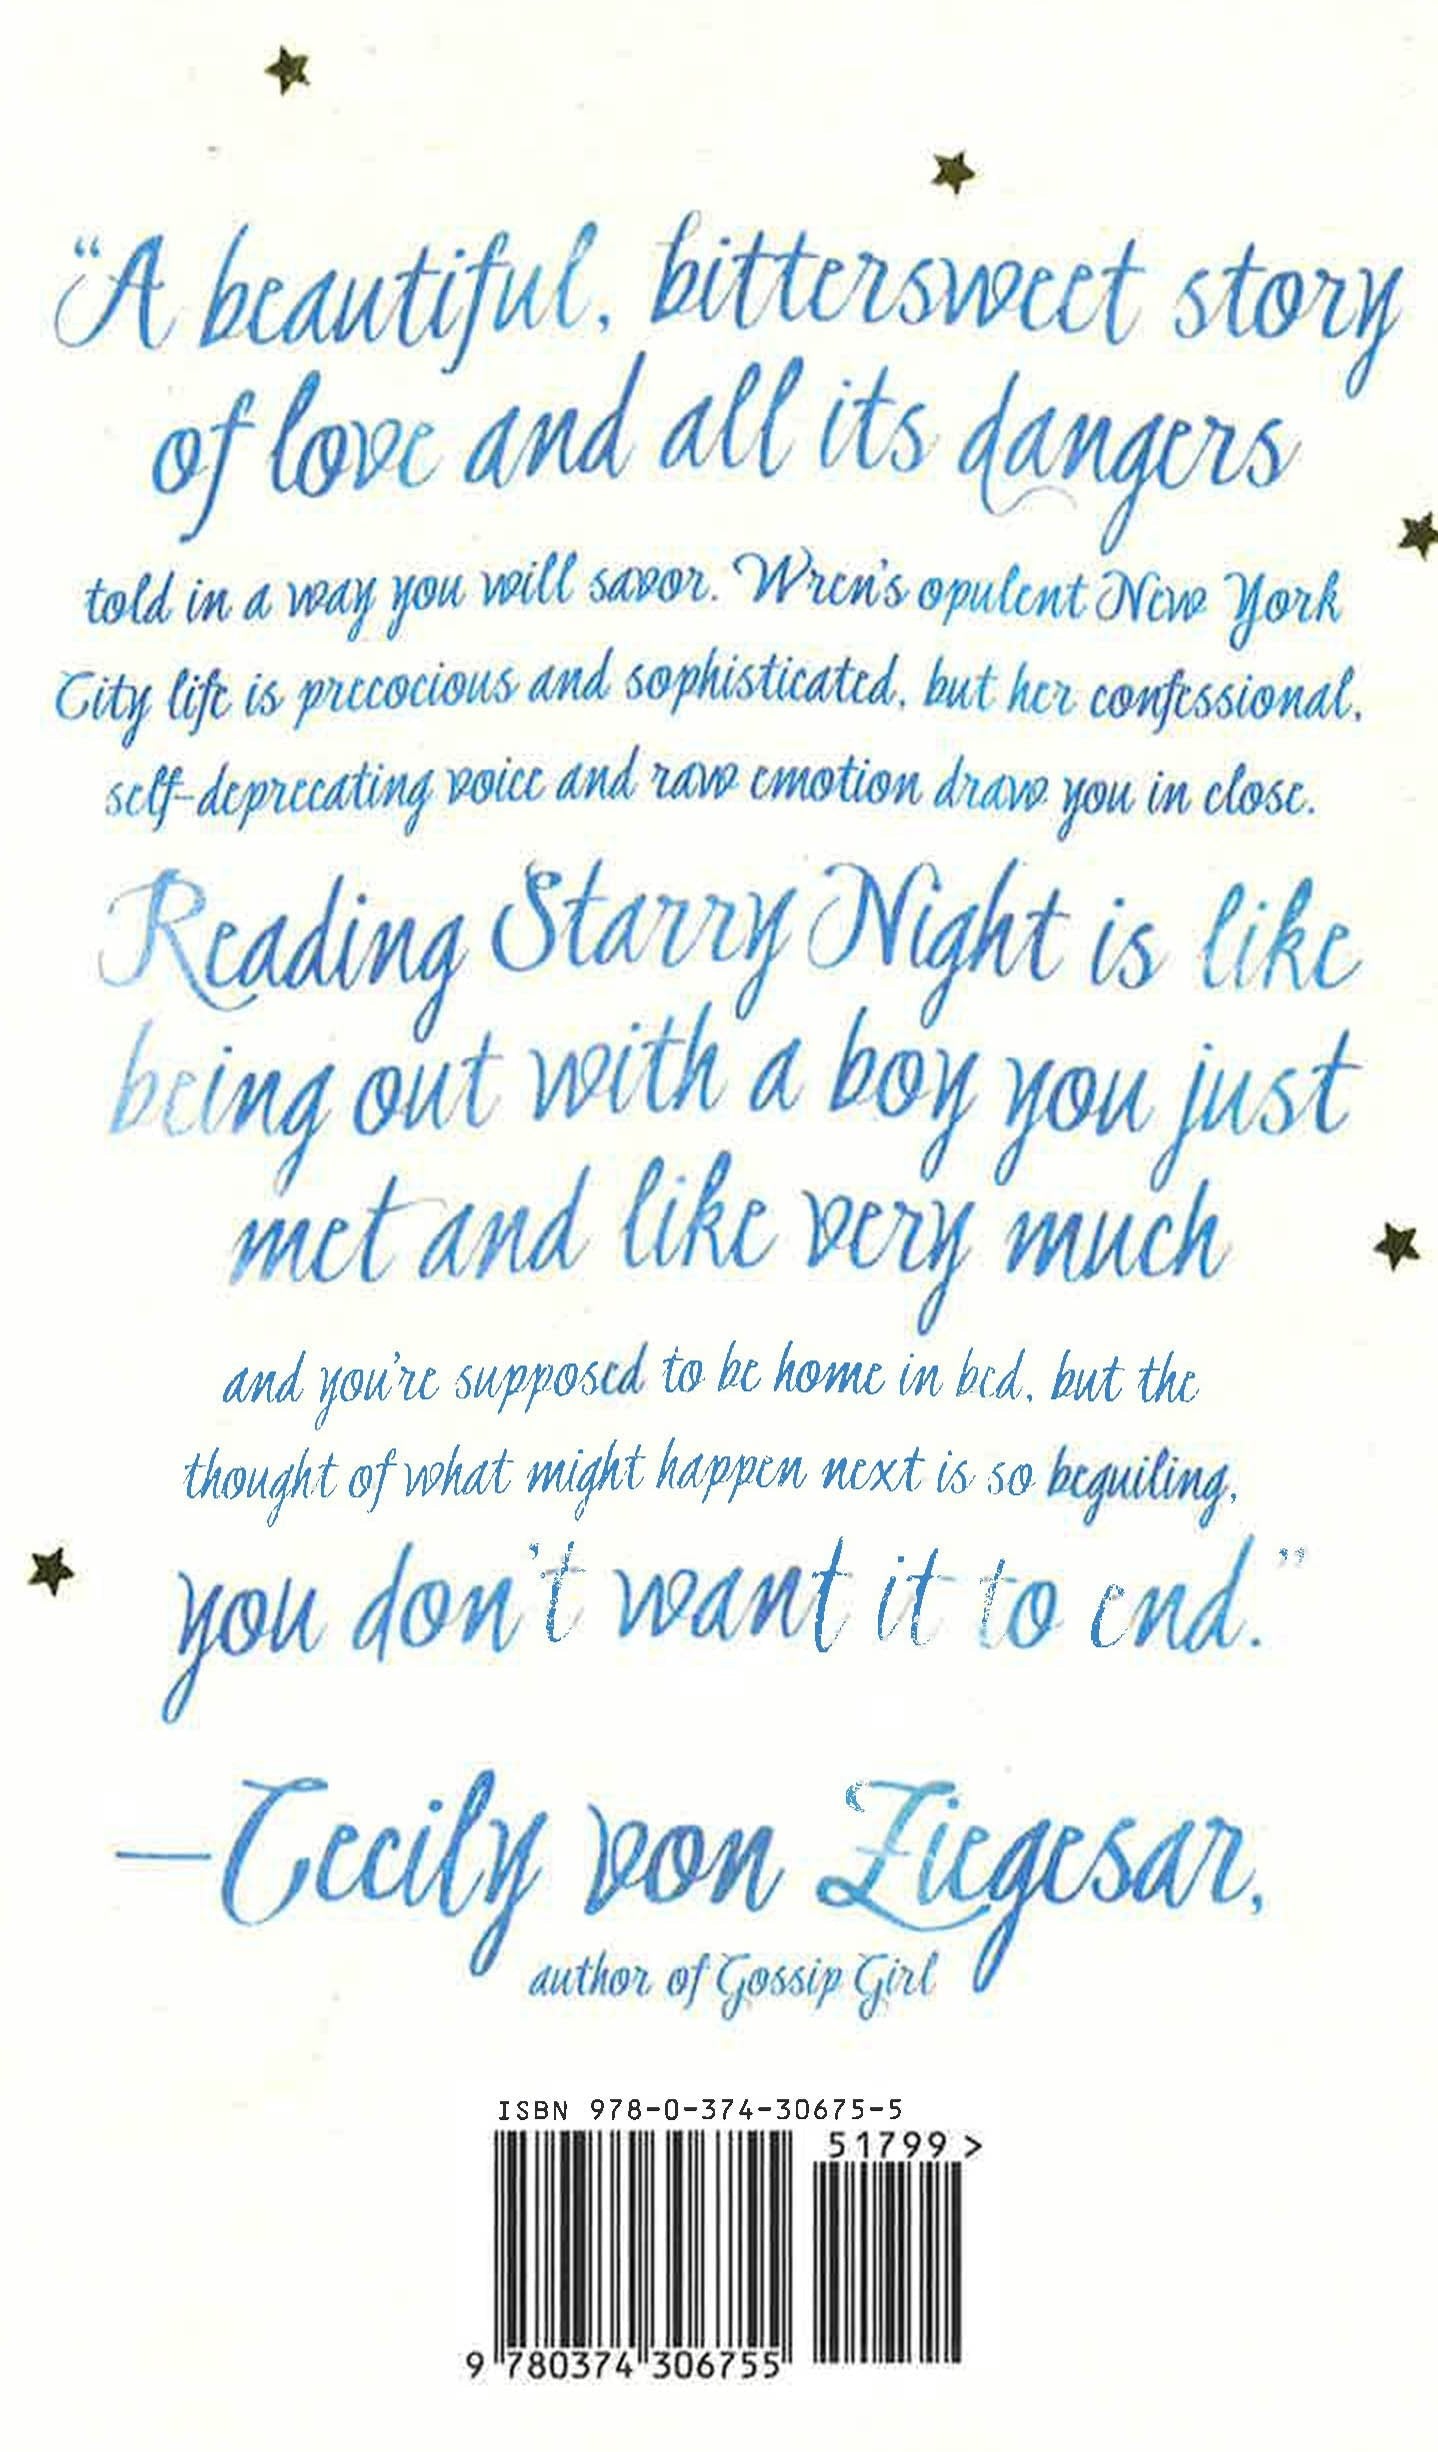 “A beautiful, bittersweet story
of love and all its dangers
told in a way you will savor. Wren's opulent New York
City life is precocious and sophisticated, but her confessional,
self-deprecating voice and raw emotion draw you in close.
Reading Starry Night is like
being out with a boy you just
met and like very much
and you're supposed to be home in bed, but the
thought of what might happen next is so beguiling,
you don't want it to end.”
—Cecily von Ziegesar,
author of Gossip Girl
ISBN 978-0-374-30675-5
51799 >
9 780374 306755